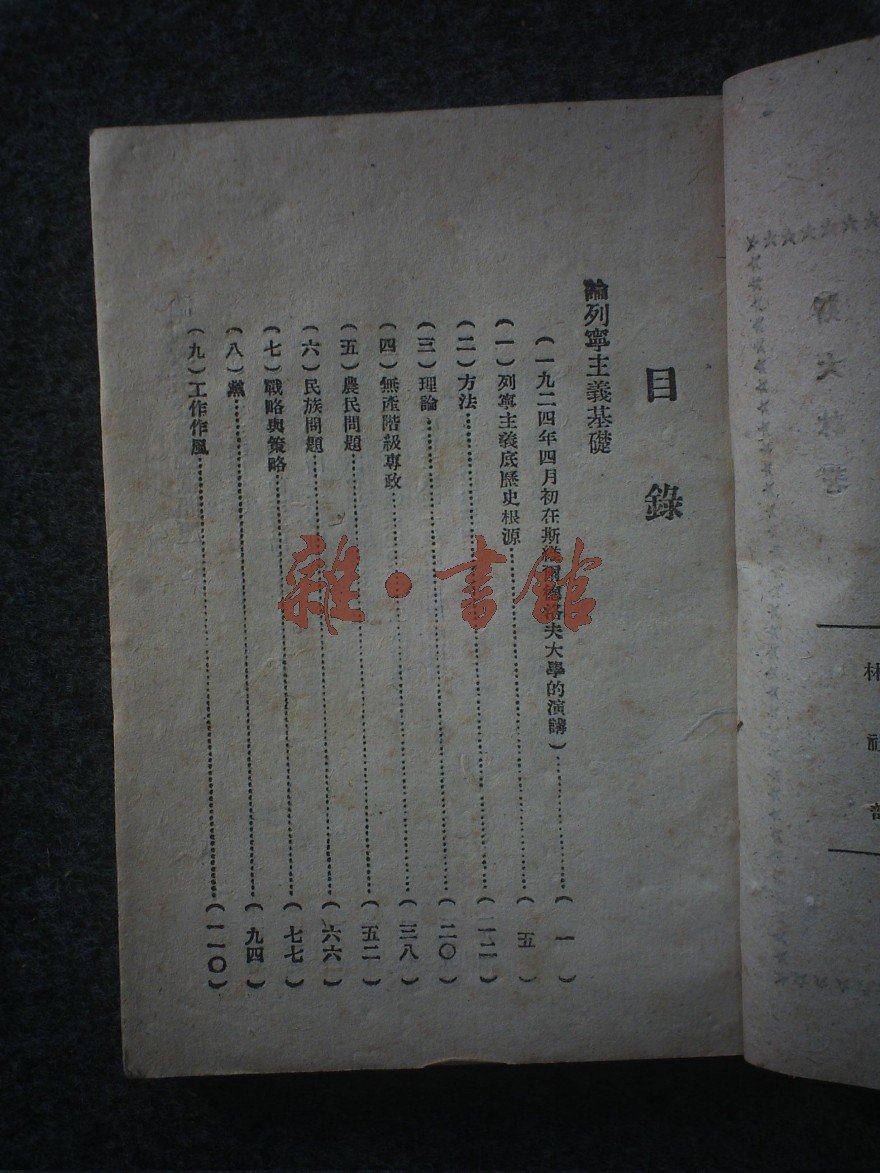 目錄
論列寧主義基礎
(一九二四年四月初在斯維爾德洛夫大學的演講)……(一)
(一)列寧主義底歷史根源……(五)
(二)方法……(一二)
(三)理論……(二〇)
(四)無產階級專政……(三八)
(五)農民問題……(五二)
(六)民族問題……(六六)
(七)戰略與策略……(七七)
(八)黨……(九四)
(九)工作作風……(一一〇)
雜·書館